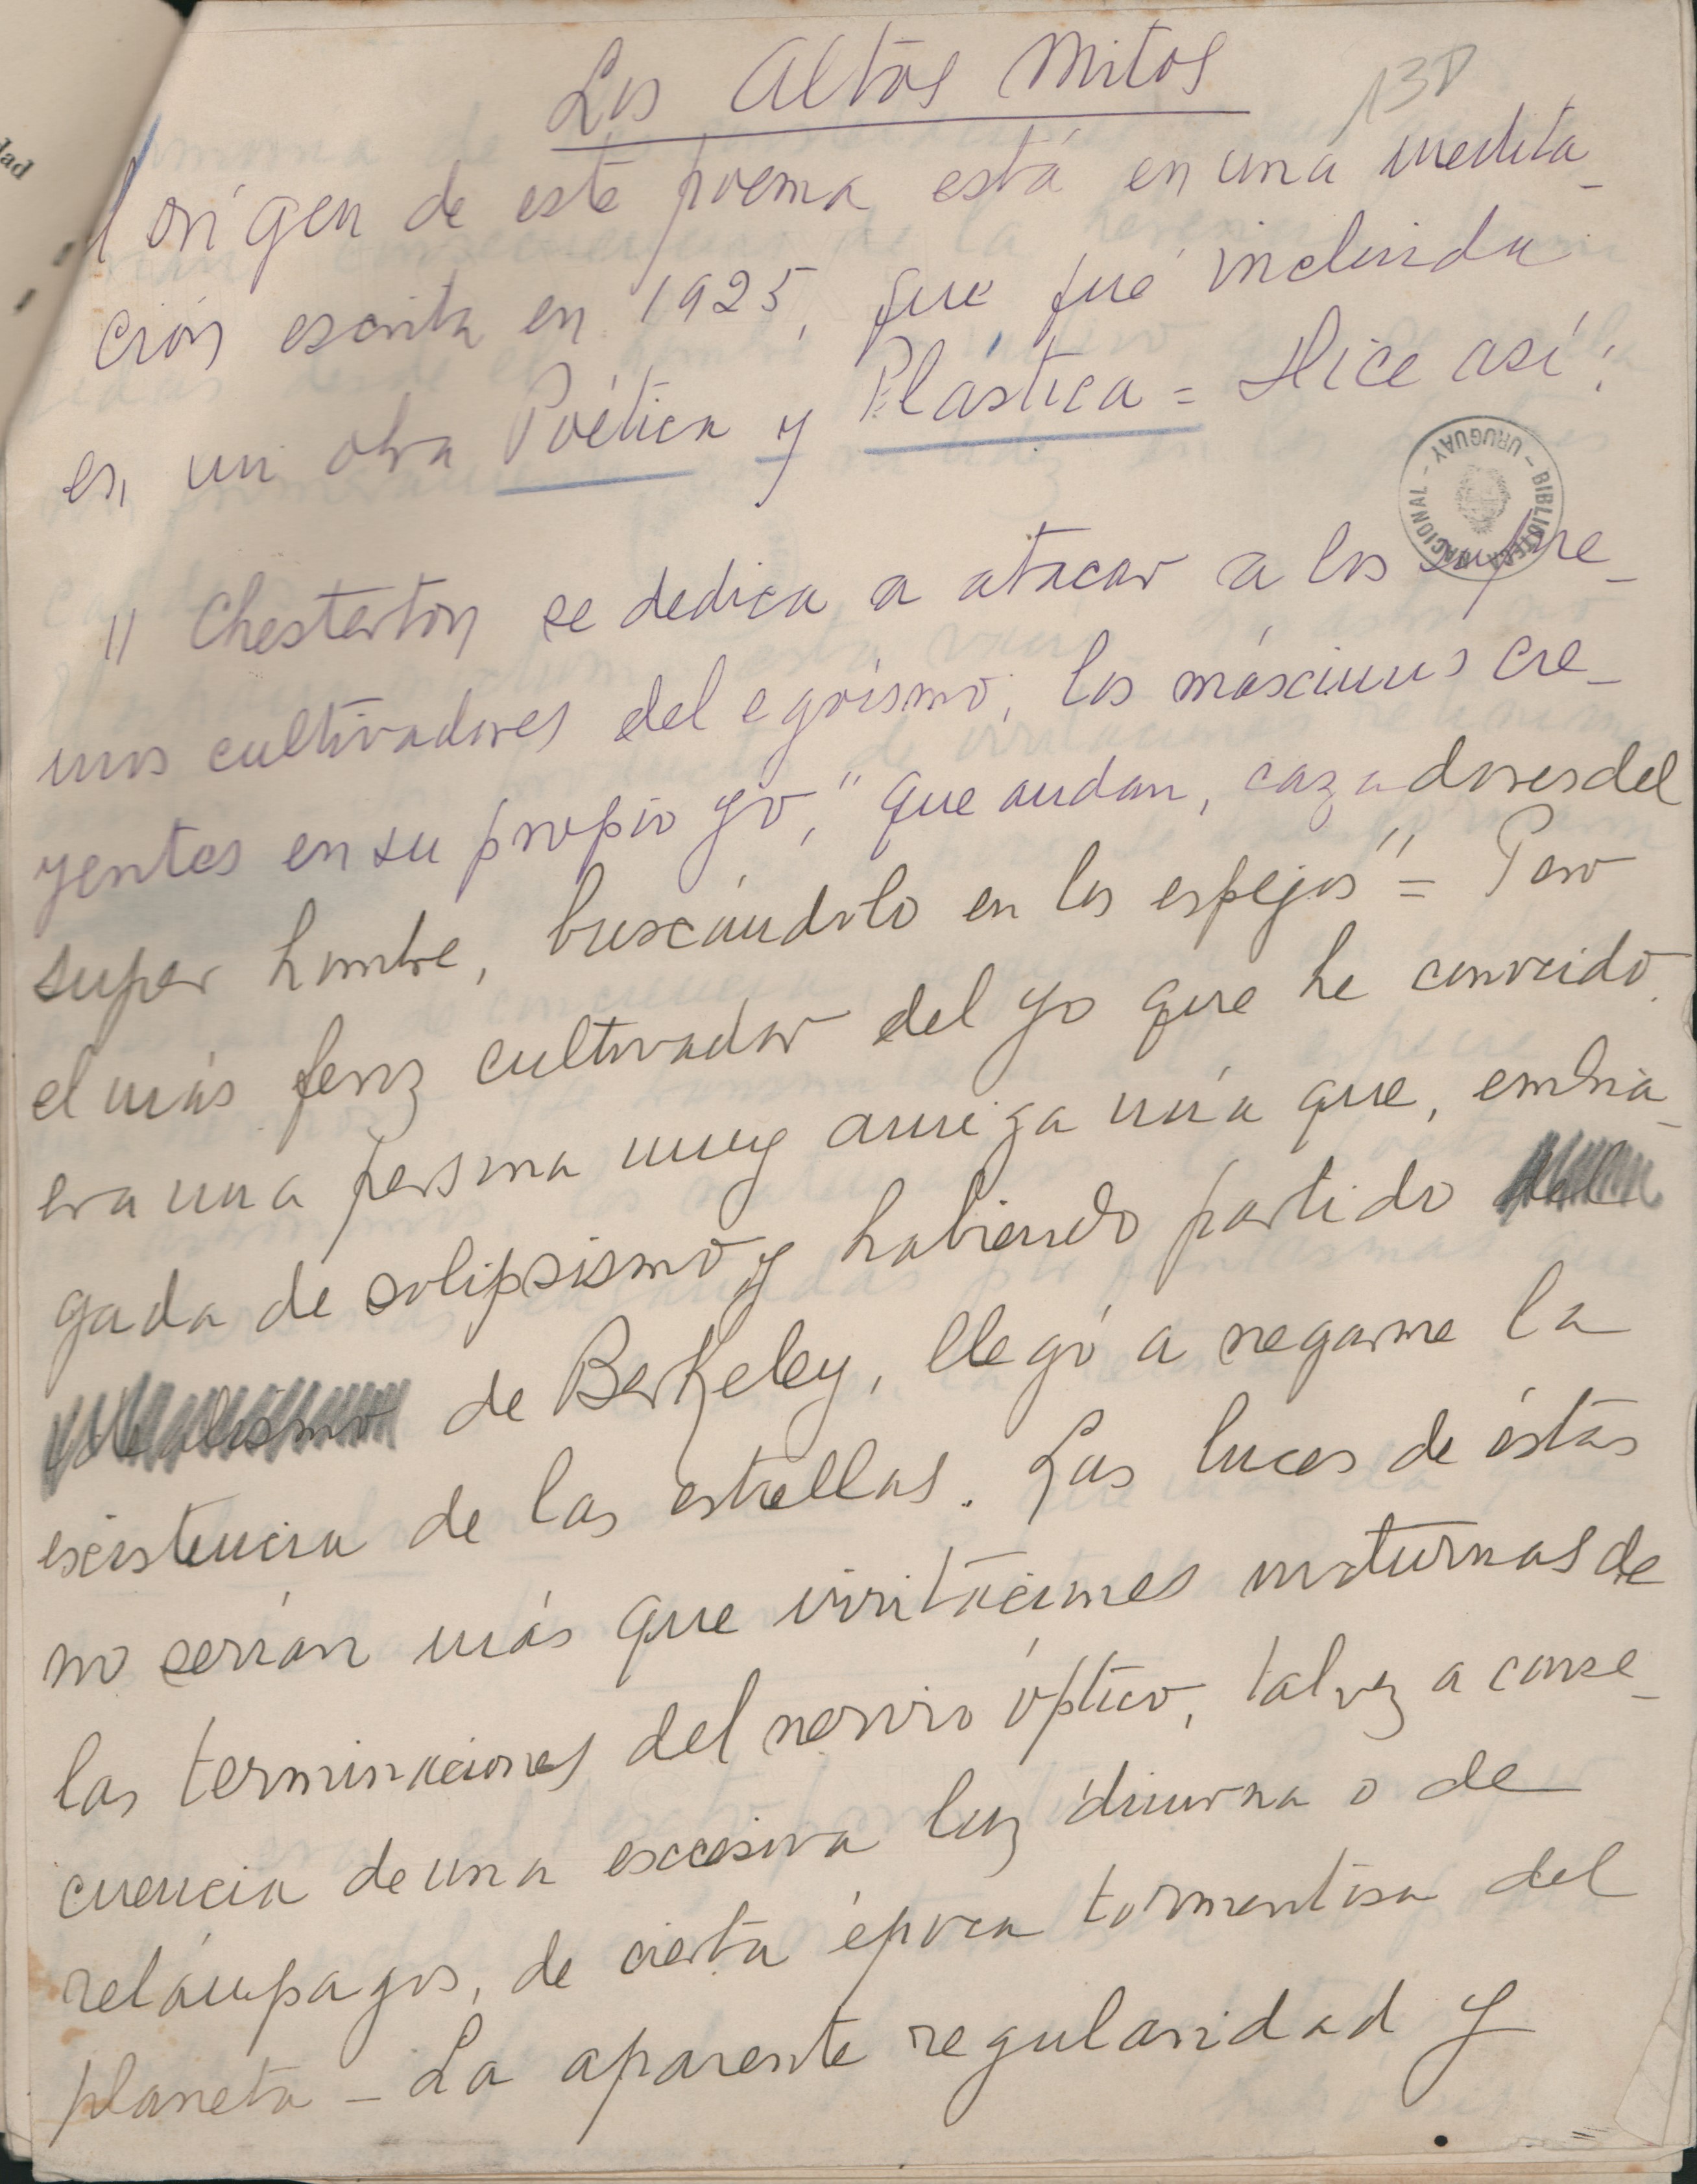 Los Altos Mitos
130
l orígen de este poema está en una medita-
ción escrita en 1925, que fué incluída
en mi obra Poética y Plástica = Dice así:
URUGUAY - BIBLIOTECA NACIONAL -
dad
" Chesterton se dedica a atacar a los supre-
mos cultivadores del egoísmo, los máscimos cre-
yentes en su propio yo, " que andan, cazadores del
super hombre, buscándolo en los espejos" = Pero
el más feroz cultivador del yo que he conocido
era una persona muy amiga mía que, embria-
gada de solipsismo y habiendo partido del
idealismo de Berkeley, llegó a negarme la
escistencia de las estrellas. Las luces de éstas
no serían más que irritaciones nocturnas de
las terminaciones del nervio óptico, tal vez a conse-
cuencia de una escesiva luz diurna o de
relámpagos, de cierta época tormentosa del
planeta - La aparente regularidad y